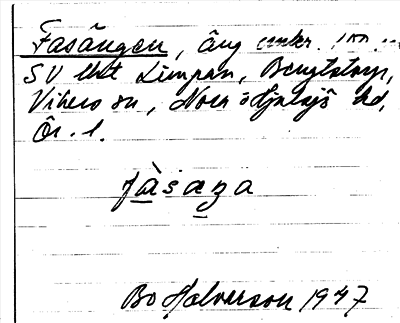 Fasängen, äng omkr. 100 m
SV llht Limpan, Bengtstorp,
Vikers sn, Nora o Hjulsjö hd,
Ör. l.
fàsaŋa
Bo Halvarson 1947